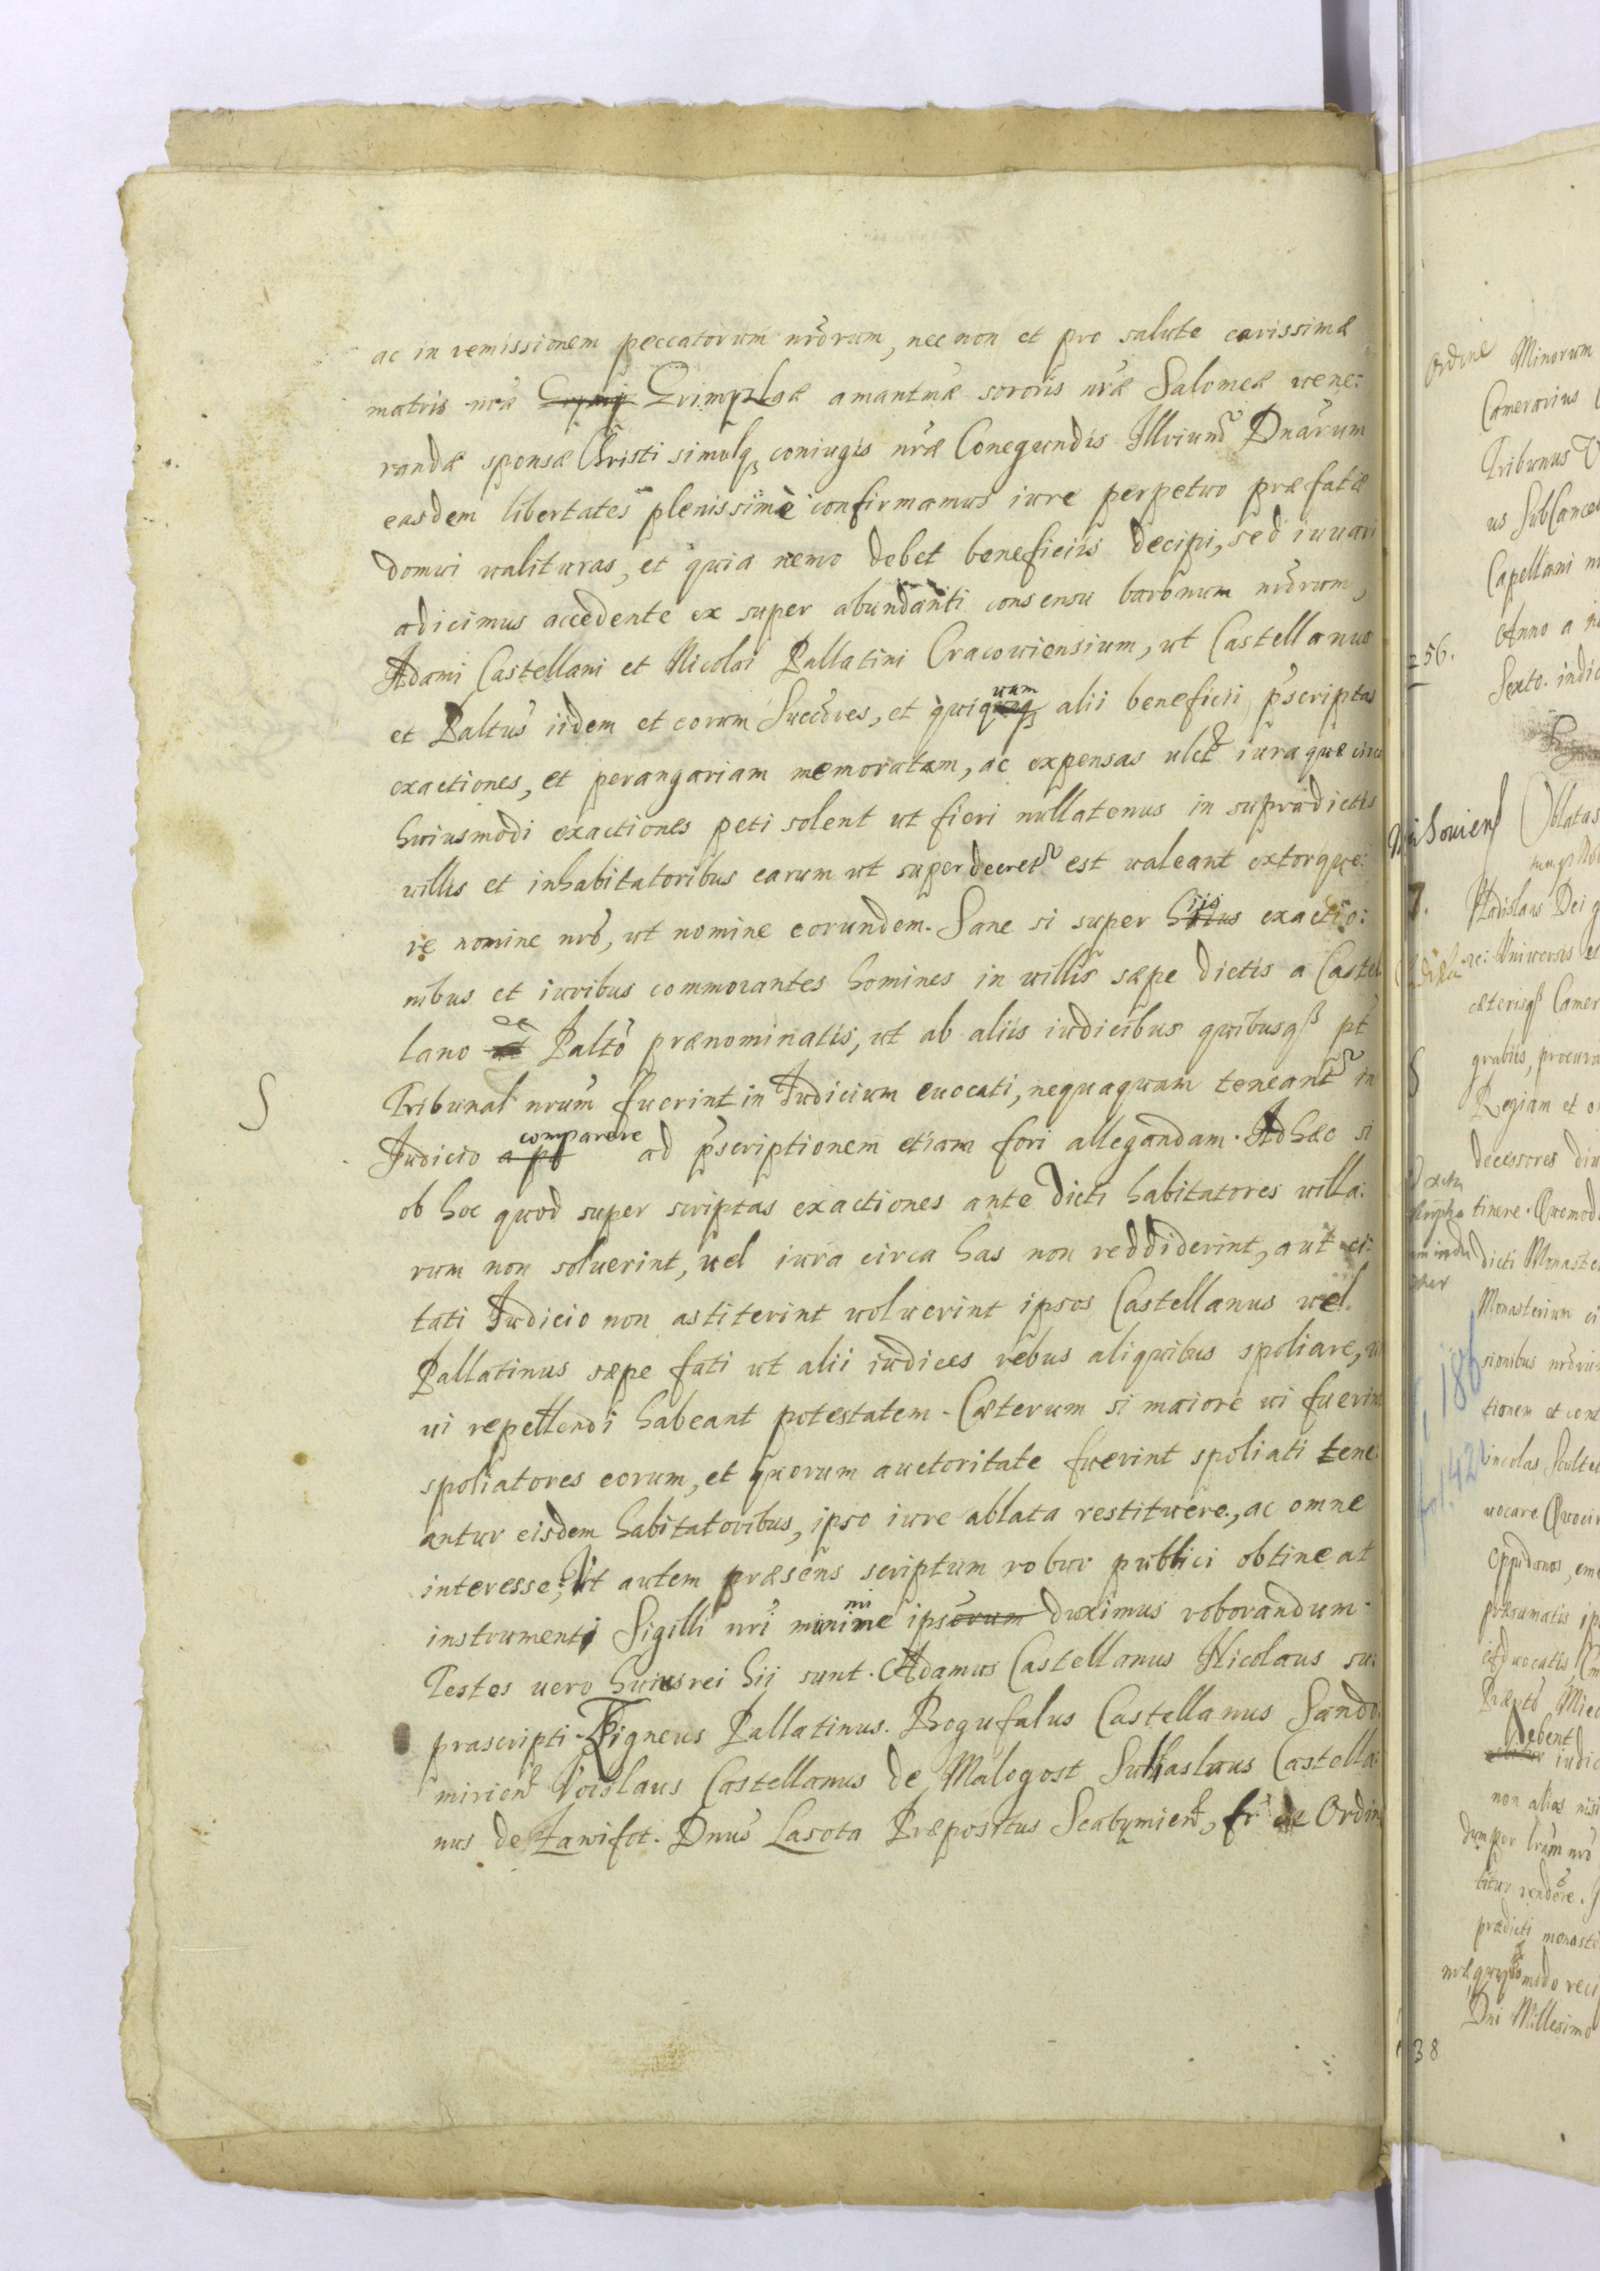 ac in remissionem peccatorum nrorum, nec non et pro salute carissimæ
matris nræ Grimizlaæ amantinæ sororis nræ Salomeæ vene:
randæ sponsæ Christi simulq coniugis nræ Conegundis Illriund Dnarum
easdem libertates plenissimè confirmamus iure perpetuo præfatæ
domui ualituras, et quia nemo debet beneficiis decipi, sed iuuari
adicimus accedente ex super abundanti consensu baronum nrorum,
Adami Castellani et Nicolai Pallatini Cracouiensium, ut Castellanus
et Paltus iidem et eorum Succores, et quiquam alii beneficii pscriptas
exactiones, et perangariam memoratam, ac expensas ulct iura quæ circa
huiusmodi exactiones peti solent ut fieri nullatenus in supradictis
uillis et inhabitatoribus earum ut super decret est ualeant extorque:
re nomine nro, ut nomine eorundem. Sane si super hiis exactio:
nibus et iuribus commorantes homines in uillis sæpe dictis a Castel
lano ac Palto prænominatis, ut ab aliis iudicibus quibusq pt
Tribunal nrum fuerint in Iudicium euocati, nequaquam teneant in
Iudicio comparere ad pscriptionem etiam fori allegandam. Ad hæc si
ob hoc quod super scriptas exactiones ante dicti habitatores uilla:
rum non soluerint, uel iura circa has non reddiderint, aut ci:
tati Iudicio non astiterint uoluerint ipsos Castellanus uel
Pallatinus sæpe fati ut alii iudices rebus aliquibus spoliare, ui
ui repellendi habeant potestatem. Cæterum si maiore ui fuerint
spoliatores eorum, et quorum auctoritate fuerint spoliati tene
antur eisdem habitatoribus, ipso iure ablata restituere, ac omne
interesse; Ut autem præsens scriptum robur publici obtineat
instrumenti Sigilli nri munimine ips duximus roborandum.
Testes uero huius rei hij sunt. Adamus Castellanus Nicolaus su:
prascripti. Signeus Pallatinus. Bogufalus Castellanus Sando
mirien Voislaus Castellanus de Malogost Sulislaus Castella:
nus de Zawifct. Dnus Lasota Præpositus Scabymien, fr de Ordin
S
Ordine Minorum
Camerarius
Tribunus
us SubCancel
Capellani
Anno a
256.
Sexto. indic
Oblatas
7.
Vladislaus Dei g
Vniuersis et
cæterisq Camer
grabiis, procura
Regiam et
decessores diu
tinere. Quemod
dicti Monast
Monasterium
sionibus nroru
tionem et cont
incolas Sculte
uocare Quocir
oppidanos,
præsumatis
Debent
iudic
non alias nisi
prædicti monast
modo
Dni Millesimo
38